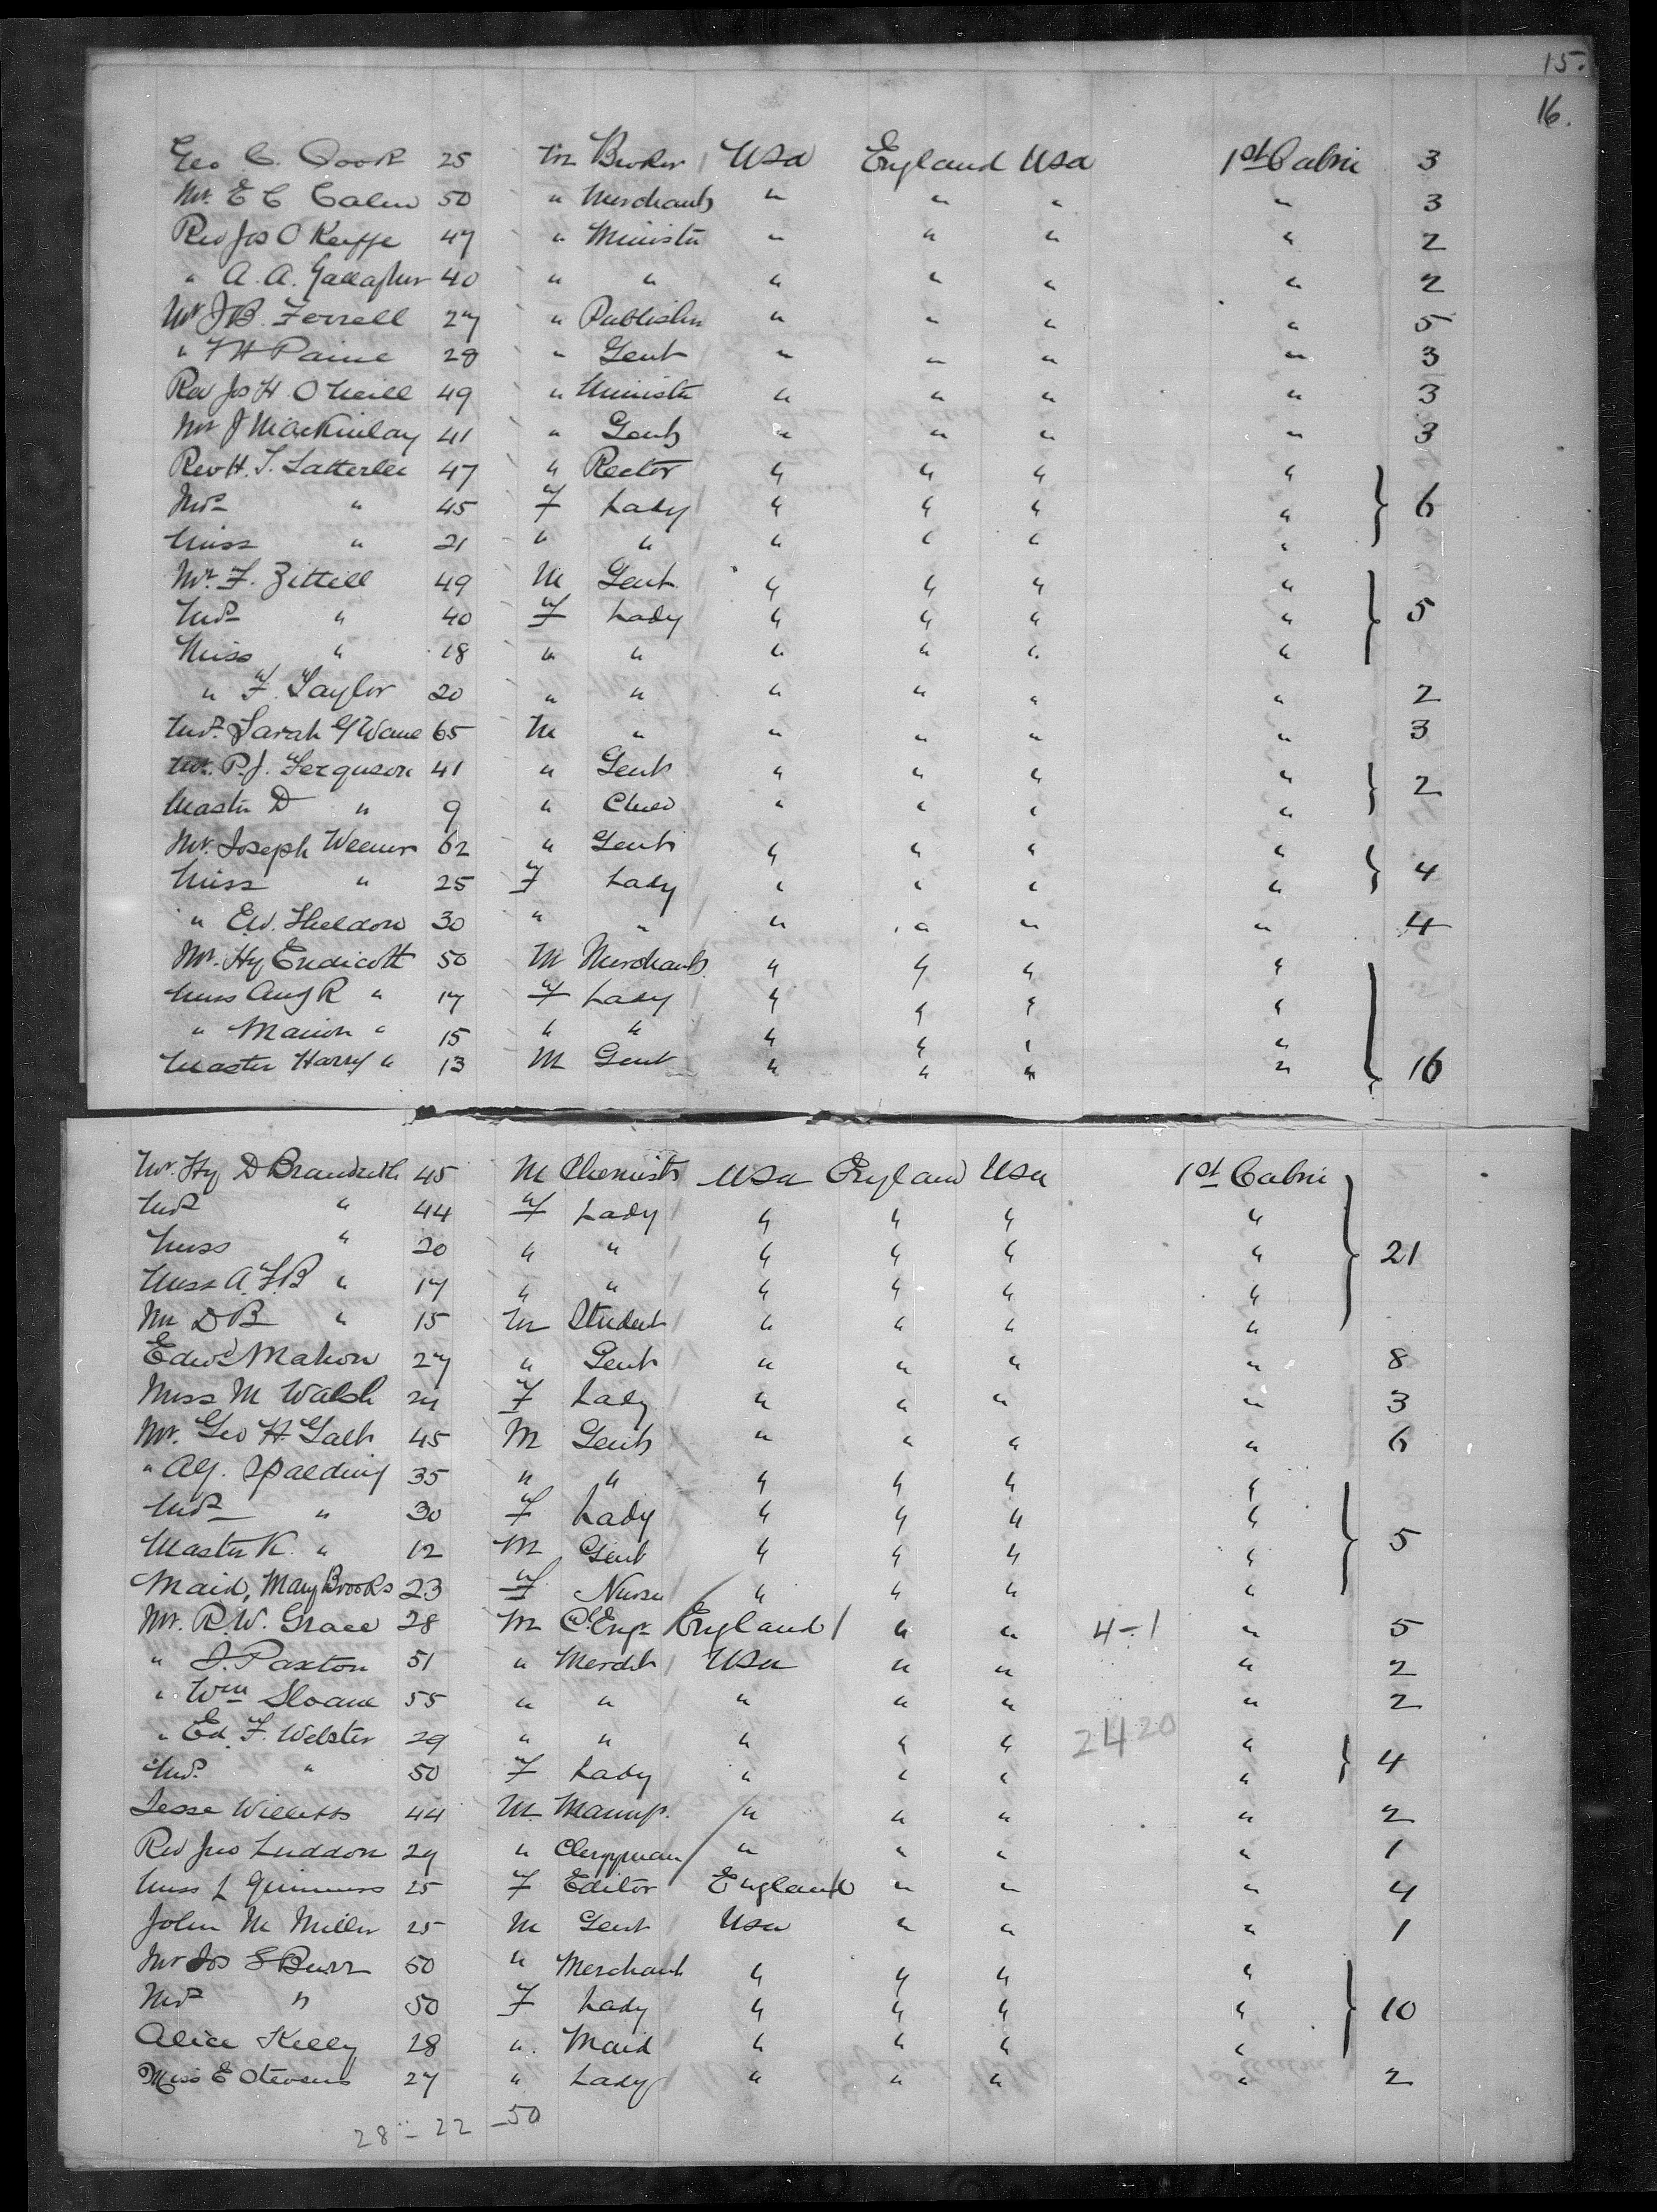 15.
16.
Geo C. Cook 25 M Broker USA England USA 1st Cabin 3
Mr. E C 50 " Merchants " " " " 3
Rev Jos O Keeffe 47 " Minister " " " " 2
" A. A. Gallagher 40 " " " " " " 2
Mr J B. Ferrell 27 " Publisher " " " " 5
" F H Paine 28 " Gent " " " " 3
Rev Jos H. O Neill 49 " Minister " " " " 3
Mr J MacKinlay 41 " Gent " " " " 3
Rev H. Y. Satterlee 47 " Rector " " " "
Mrs " 45 F Lady " " " " } 6
Miss " 21 " " " " " "
Mr. F. Zittell 49 M Gent " " " "
Mrs " 40 F Lady " " " " } 5
Miss " 18 " " " " " "
" F. Taylor 20 " " " " " " 2
Mrs. Sarah G Wane 65 M " " " " " 3
Mr. P. J. Ferguson 41 " Gent " " " " } 2
Master D " 9 " Child " " " "
Mr. Joseph Weener 62 " Gent " " " " } 4
Miss " 25 F Lady " " " "
" E.W. Sheldon 30 " " " " " " 4
Mr. Hy Endicott 50 M Merchant " " " "
Miss Aug R " 17 F Lady " " " "
" Marion " 15 " " " " " "
Master Harry " 13 M Gent " " " " } 16
Mr. Hy D Brandreth 45 M Chemist USA England USA 1st Cabin
Mrs " 44 F Lady " " " "
Miss " 20 " " " " " " } 21
Miss A. F. B " 17 " " " " " "
Mr D B " 15 M Student " " " "
Edwd Mahon 27 " Gent " " " " 8
Miss M Walsh 24 F Lady " " " " 3
Mr. Geo H. Galt 45 M Gent " " " " 6
" A G. Spalding 35 " " " " " "
Mrs " 30 F Lady " " " "
Master K. " 12 M Gent " " " " } 5
Maid, Mary Brooks 23 F Nurse " " " "
Mr. R. W. Grace 28 M C Engr England " " 4-1 " 5
" J. Paxton 51 " Mercht USA " " " 2
" Wm Sloane 55 " " " " " " 2
" Ed. F. Webster 29 " " " " " 2420 " } 4
Mrs. " 50 F Lady " " " "
Jesse Willetts 44 M Manuf. " " " " 2
Rev Jno Luddon 29 " Clergyman " " " " 1
Miss L 25 F Editor England " " " 4
John M Miller 25 M Gent USA " " " 1
Mr Jos S Burr 50 " Merchant " " " "
Mrs " 50 F Lady " " " " } 10
Alice Kelly 28 " Maid " " " "
Miss E Stevens 27 " Lady " " " " 2
28 - 22 - 50